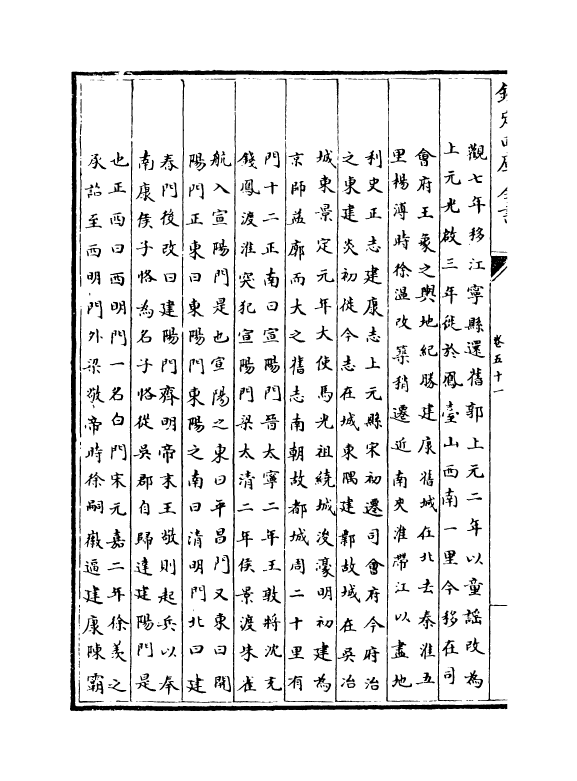 欽定四庫全書
卷五十一
觀七年移江寧縣還舊郭上元二年以童謡改為
上元光啟三年徙於鳳臺山西南一里今移在司
會府王象之輿地紀勝建康舊城在北去秦淮五
里楊溥時徐温改築稍遷近南夾淮帶江以盡地
利史正志建康志上元縣宋初遷司會府今府治
之東建炎初徙今志在城東隅建鄴故城在吳冶
城東景定元年大使馬光祖繞城浚濠明初建為
京師益廓而大之舊志南朝故都城周二十里有
門十二正南曰宣陽門晉太寧二年王敦將沈充
錢鳳渡淮突犯宣陽門梁太清二年侯景渡朱雀
航入宣陽門是也宣陽之東曰平昌門又東曰開
陽門正東曰東陽門東陽之南曰清明門北曰建
春門後改曰建陽門齊明帝末王敬則起兵以奉
南康侯子恪為名子恪從吳郡自歸達建陽門是
也正西曰西明門一名白門宋元嘉二年徐羨之
承詔至西明門外梁敬帝時徐嗣徽逼建康陳霸